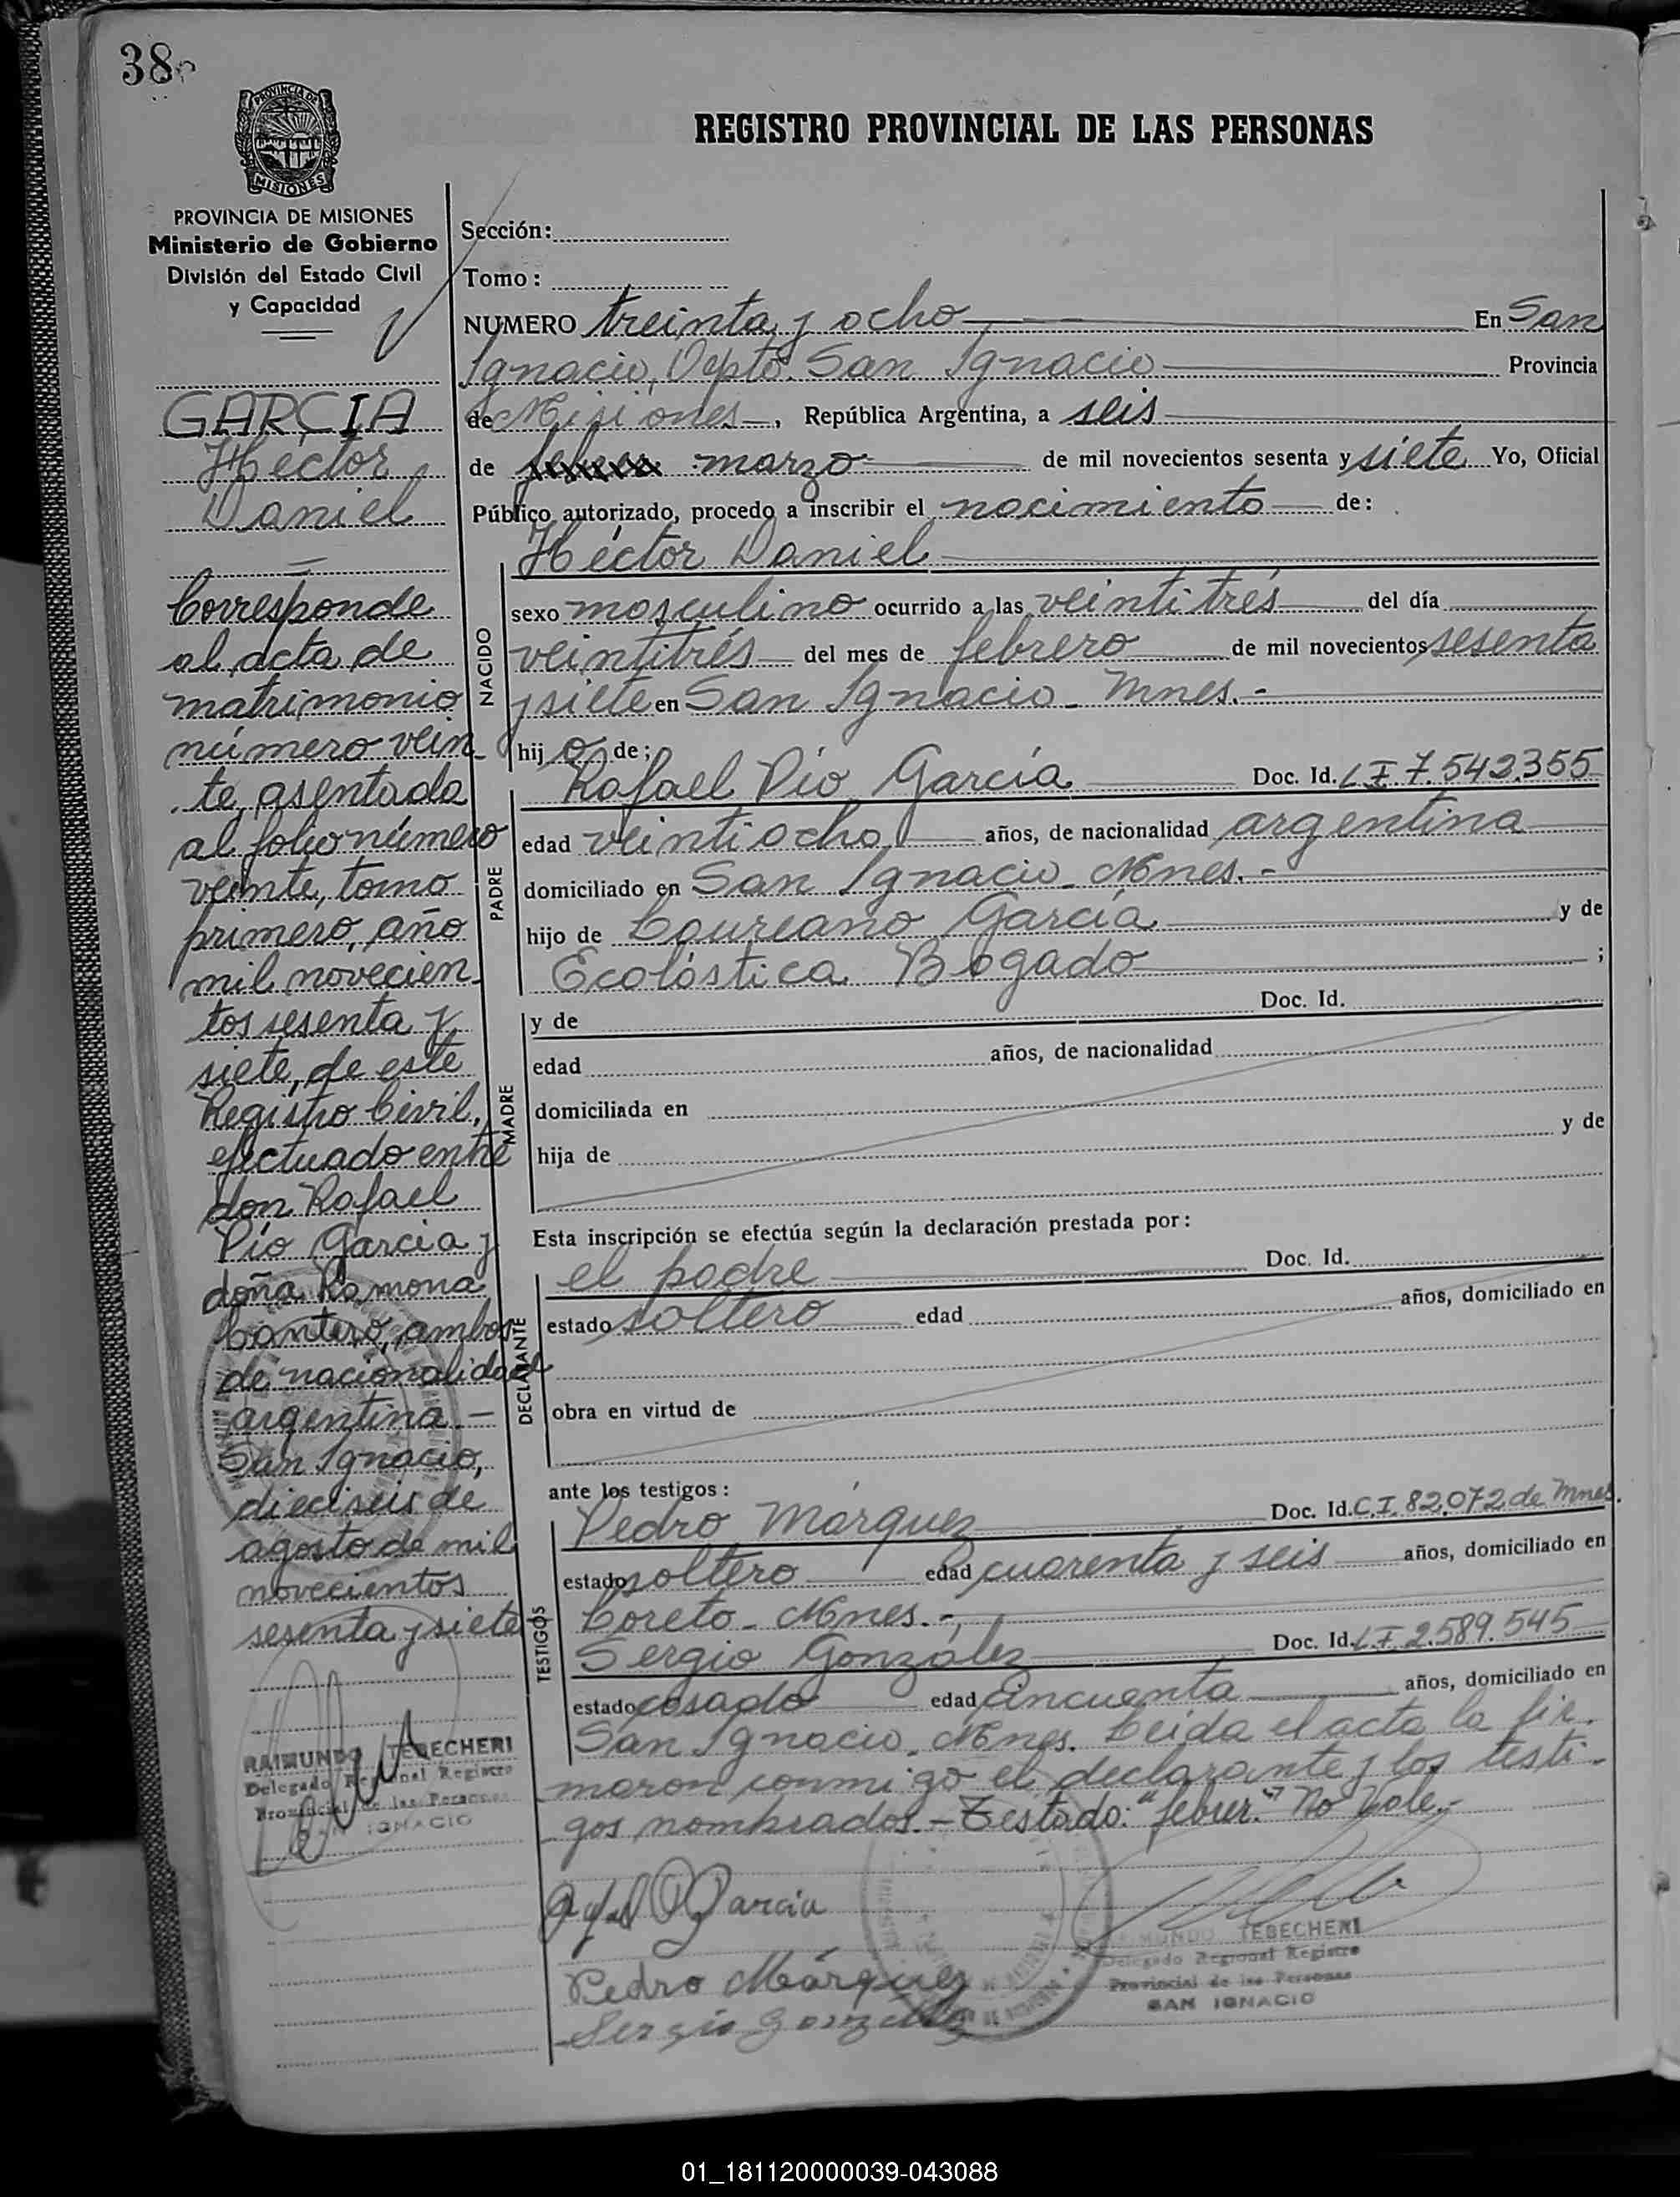 38
REGISTRO PROVINCIAL DE LAS PERSONAS
PROVINCIA DE
MISIONES
PROVINCIA DE MISIONES
Ministerio de Gobierno
División del Estado Civil
y Capacidad
GARCIA
Héctor
Daniel
Corresponde
al acta de
matrimonio
número vein
te, asentada
al folio número
veinte, tomo
primero, año
mil novecien
tos sesenta y
siete, de este
Registro Civil,
efectuado entre
don Rafael
Pío García y
doña Ramona
Cantero, ambos
de nacionalidad
argentina.-
San Ignacio,
dieciseis de
agosto de mil
novecientos
sesenta y siete
RAIMUNDO TEBECHERI
Delegado Regional Registro
Provincial de las Personas
SAN IGNACIO
Sección:
Tomo:
NUMERO treinta y ocho En San
Ignacio, Depto. San Ignacio Provincia
de Misiones, República Argentina, a seis
de marzo de mil novecientos sesenta y siete Yo, Oficial
Público autorizado, procedo a inscribir el nacimiento de:
Héctor Daniel
NACIDO
sexo masculino ocurrido a las veintitrés del día
veintitrés del mes de febrero de mil novecientos sesenta
y siete en San Ignacio - Mnes.-
hijo de;
PADRE
Rafael Pío García Doc. Id. L I 7.542.355
edad veintiocho años, de nacionalidad argentina
domiciliado en San Ignacio - Mnes.-
hijo de Laureano García y de
Ecolástica Bogado ;
MADRE
y de Doc. Id.
edad años, de nacionalidad
domiciliada en
hija de y de
Esta inscripción se efectúa según la declaración prestada por:
DECLARANTE
el padre Doc. Id.
estado soltero edad años, domiciliado en
obra en virtud de
ante los testigos:
TESTIGOS
Pedro Márquez Doc. Id. C.I. 82.072 de Mnes.
estado soltero edad cuarenta y seis años, domiciliado en
Loreto - Mnes.-,
Sergio González Doc. Id. L I 2.589.545
estado casado edad cincuenta años, domiciliado en
San Ignacio - Mnes. Leída el acta la fir-
maron conmigo el declarante y los testi-
gos nombrados.- Testado: "febrer." No Vale.-
García
Pedro Márquez
Sergio González
TEBECHERI
Delegado Regional Registro
Provincial de las Personas
SAN IGNACIO
01_181120000039-043088